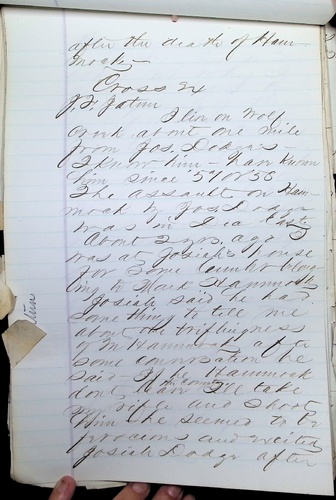 after the death of Ham-
mock
Cross Ex
J. F. Jatim
I live on Wolf
Creek about one mile
from Jos. Dodge's
I knew him - have known
him since 57 or 58
The assault on Ham-
mock by Jos. Dodge
was in
About 2 yrs. ago
was at Josiah's house
for some lumber belong
ing to Mark Hammock
Josiah said he had
something to tell me
about the triflingness
of M Hammock after
some conversation he
said if he Hammock
don't I'll take
my rifle and shoot
him he seemed to be
and excited
Josiah Dodge after